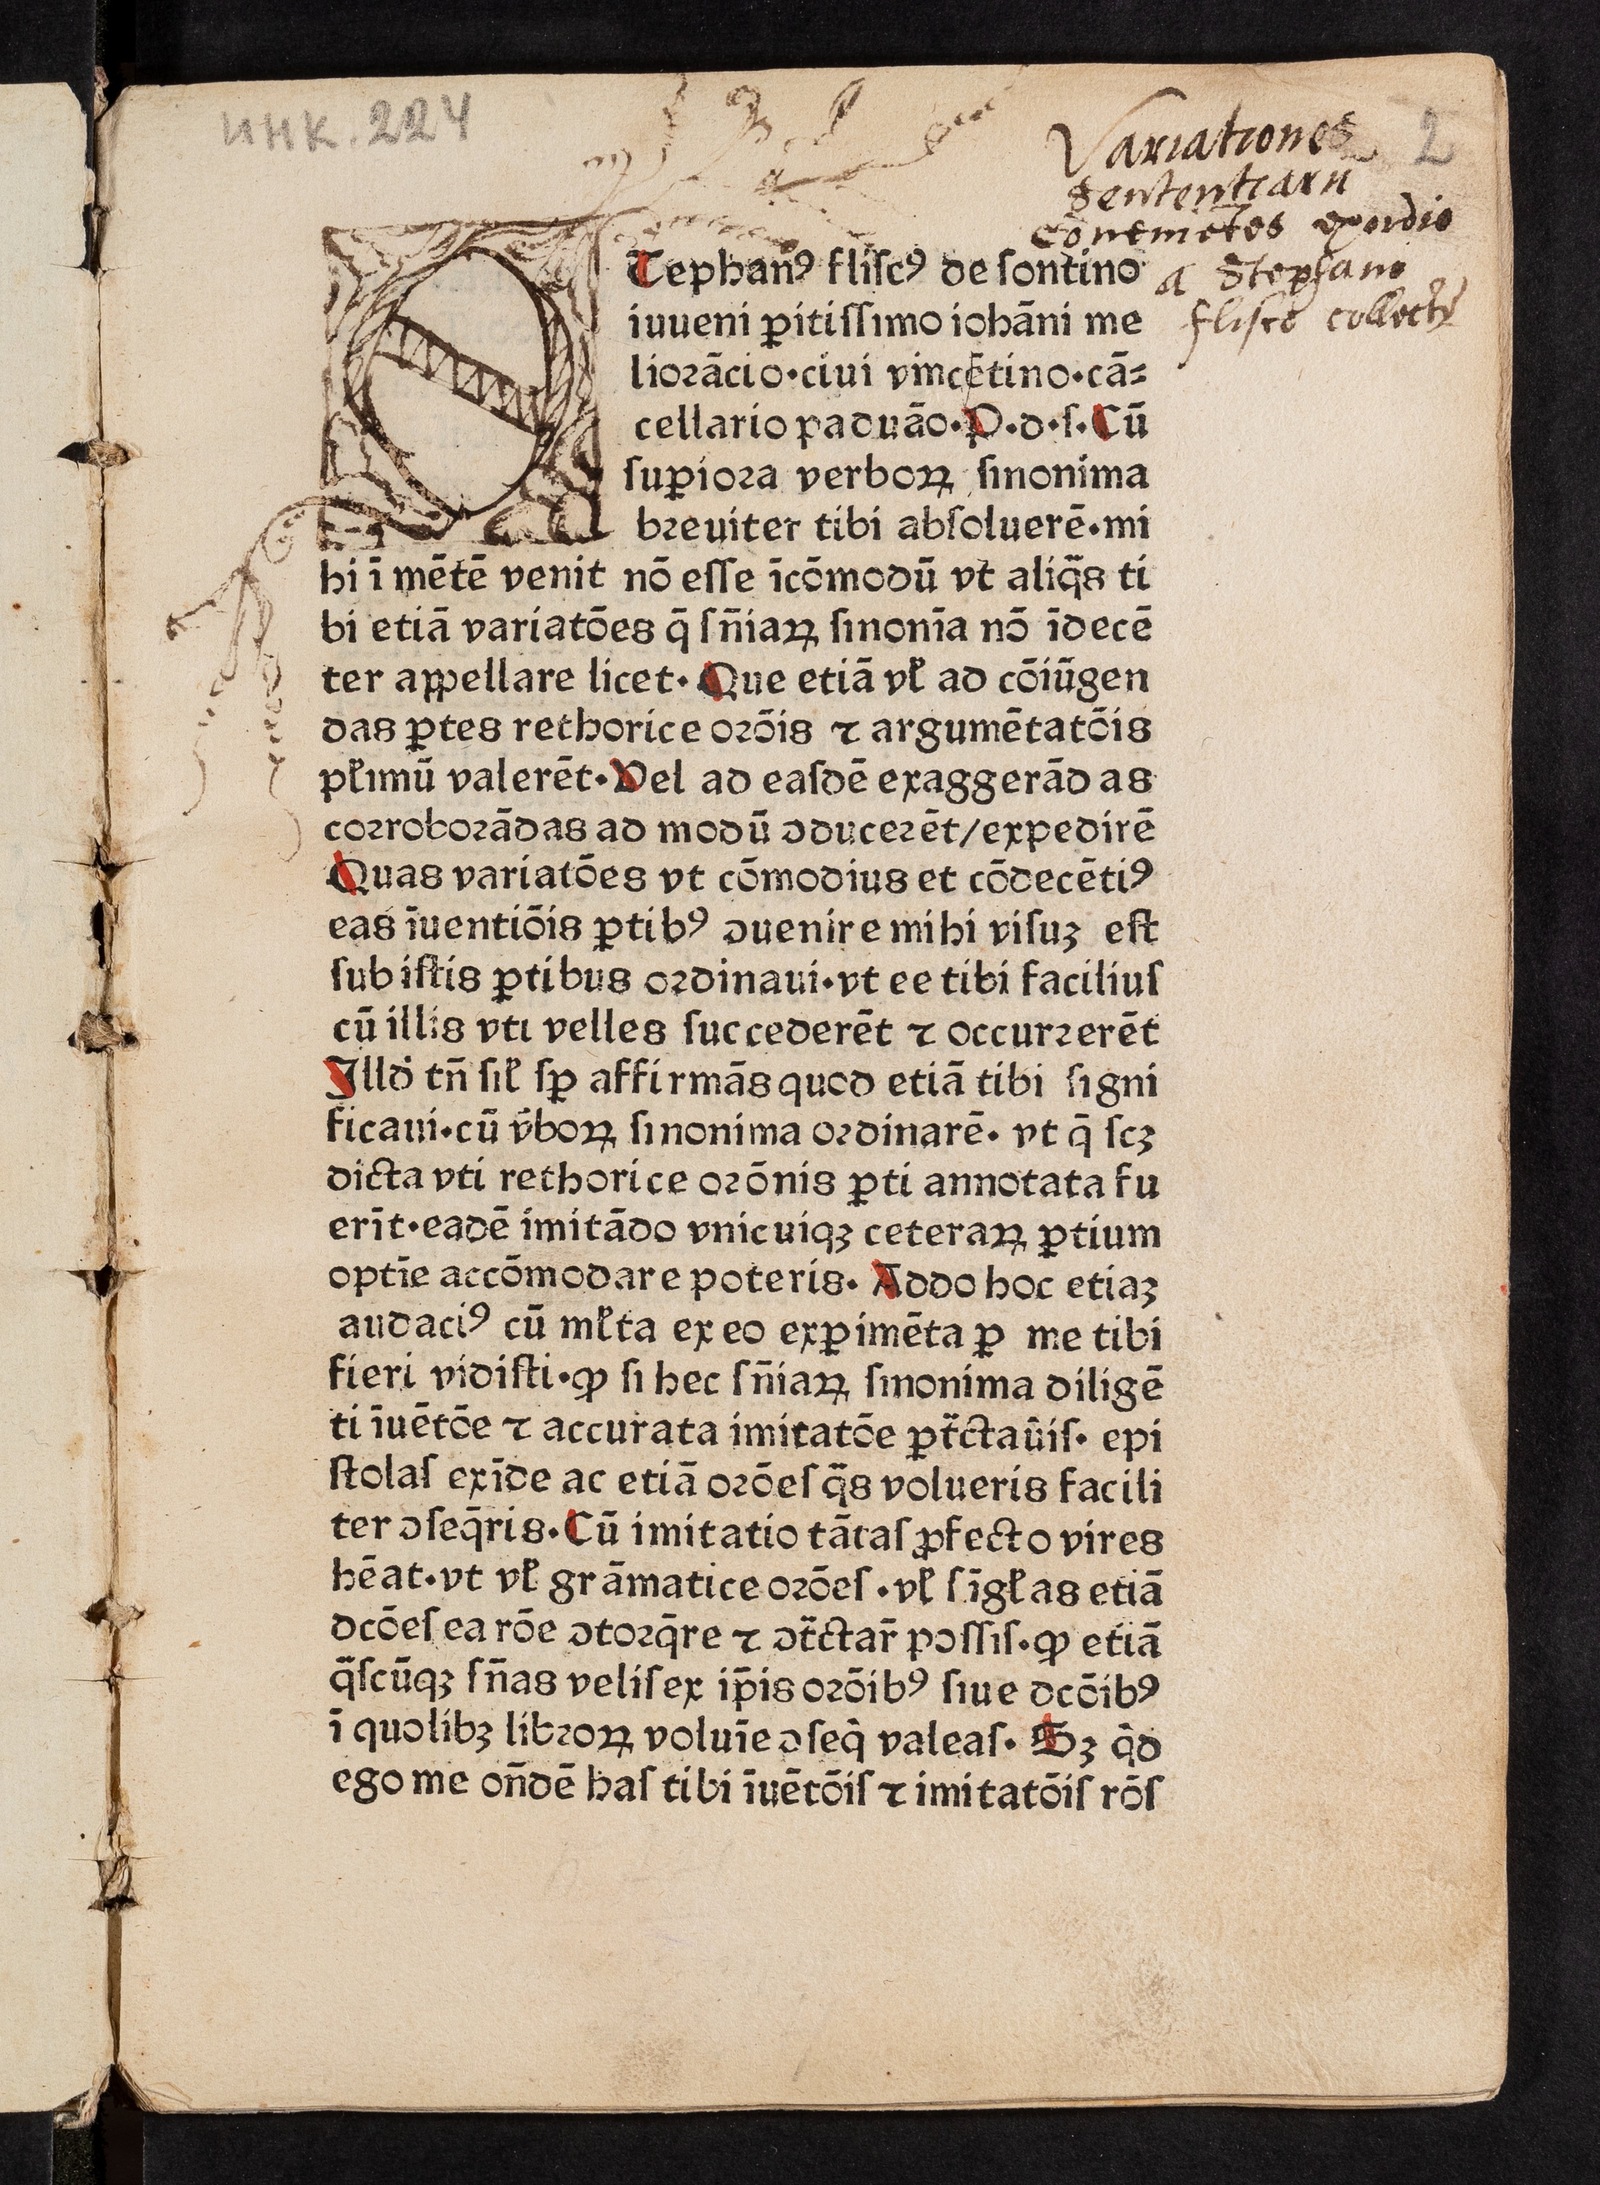 инк. 224
2
Variationes
Sententiarū
cōntinētes exordio
a Stephano
flisco
Tephanꝰ fliſcꝰ de ſontino
iuueni ꝑitiſſimo iohāni me
lioꝛācio·ciui vincētino·cā⸗
cellario paduāo·P·d·ſ·Cū
ſuꝑioꝛa verboꝝ ſinonima
bꝛeuiter tibi abſoluerē·mi
hi ī mētē venit nō eſſe īcōmodū vt aliq̄s ti
bi etiā variatōes q̄ ſn̄iaꝝ ſinonīa nō īdecē
ter appellare licet· Que etiā vł ad cōiūgen
das ꝑtes rethorice oꝛōis ⁊ argumētatōis
płimū valerēt·Vel ad eaſdē exaggerād as
coꝛroboꝛādas ad modū ↄducerēt/expedirē
Quas variatōes vt cōmodius et cōdecētiꝰ
eas īuentiōis ꝑtibꝰ ↄuenire mihi viſuꝫ eſt
ſub iſtis ꝑtibus oꝛdinaui·vt ee tibi faciliuſ
cū illis vti velles ſuccederēt ⁊ occurꝛerēt
Illd̓ tn̄ ſił ſꝑ affirmās quod etiā tibi ſigni
ficaui·cū v̄boꝝ ſinonima oꝛdinarē· vt q̄ ſcꝫ
dicta vti rethorice oꝛōnis ꝑti annotata fu
erīt·eadē imitādo vnicuiqꝫ ceteraꝝ ꝑtium
optīe accōmodare poteris· Addo hoc etiaꝫ
audaciꝰ cū młta ex eo exꝑimēta ꝑ me tibi
fieri vidiſti·ꝙ ſi hec ſn̄iaꝝ ſinonima diligē
ti īuētōe ⁊ accurata imitatōe ꝑt̄ctaūiſ· epi
ſtolaſ exīde ac etiā oꝛōeſ q̄s volueris facili
ter ↄſeq̄ris·Cū imitatio tātaſ ꝓfecto vires
hēat·vt vł grāmatice oꝛōeſ·vł ſīgłas etiā
dcōeſ ea rōe ↄtoꝛq̄re ⁊ ↄt̄ctar̄ poſſiſ·ꝙ etiā
q̄ſcūqꝫ ſn̄as veliſ ex ip̄is oꝛōibꝰ ſiue dcōibꝰ
ī quolibꝫ libꝛoꝝ voluīe ↄſeq̄ valeaſ· Sꝫ q̄d
ego me on̄dē haſ tibi īuētōiſ ⁊ imitatōiſ rōſ